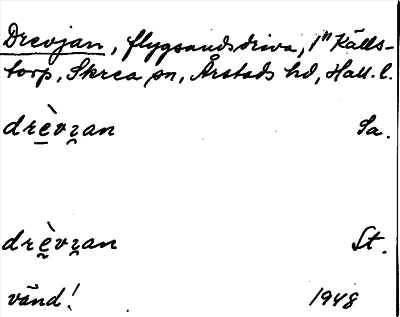 Drevjan, flygsandsdriva, 1" Källs-
torp, Skrea sn, Årstads hd, Hall. l.
drè̲vʒ̭an Sa.
drè̬vʒ̭an St.
vänd! 1948